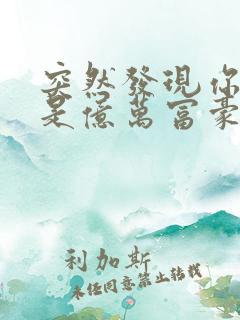 突然發現你
是億萬富豪
利加斯
未经同意禁止转载